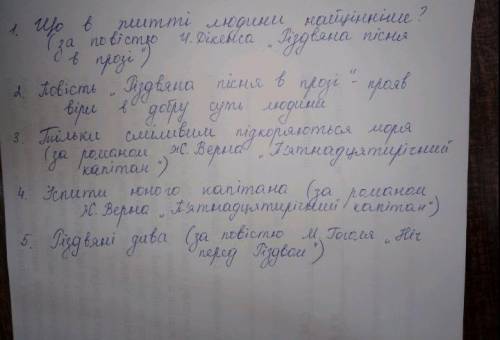 1. Що в житті людини найцінніше?
(за повістю Ч.Дікенса „Різдвяна пісня
в прозі")
2. Повість „Різдвяна пісня в прозі" - прояв
віри в добру суть людини
3. Тільки сміливим підкоряються моря
(за романом Ж.Верна „П'ятнадцятирічний
капітан")
4. Іспити юного капітана (за романом
Ж.Верна „П'ятнадцятирічний капітан")
5. Різдвяні дива (за повістю М.Гоголя „Ніч
перед Різдвом")